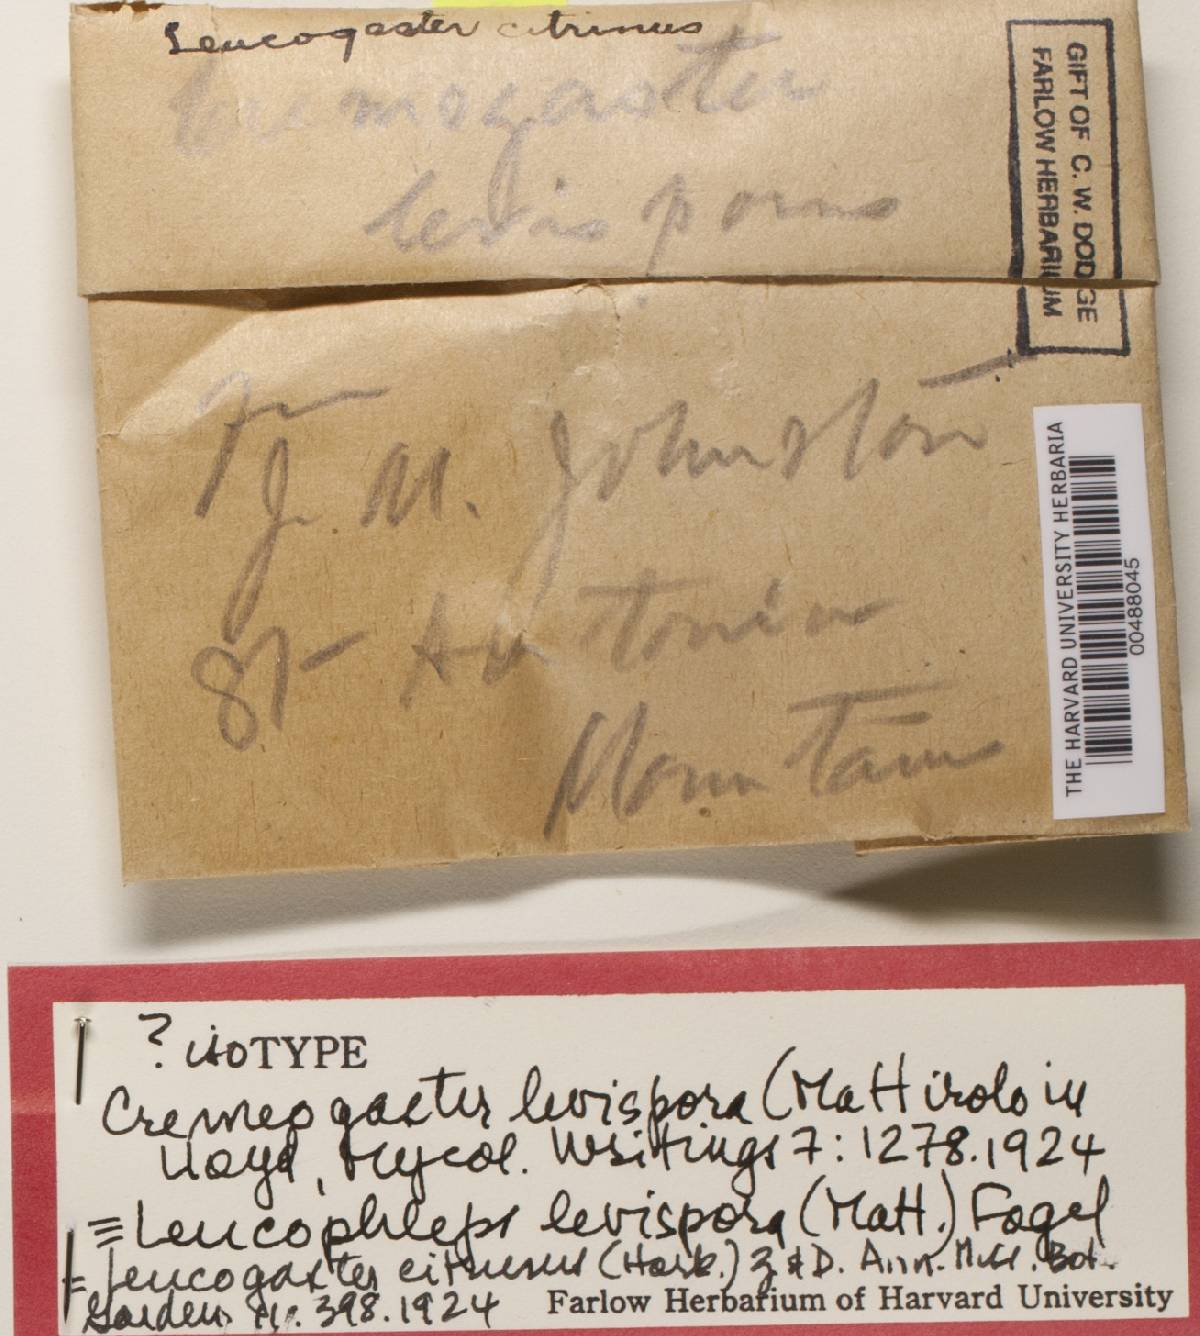 Leucogaster citrinus
Cremogaster
levisporus
GIFT OF C. W. DODGE
FARLOW HERBARIUM
Fr
J. M. Johnston
St Antonin
Mountain
THE HARVARD UNIVERSITY HERBARIA
00488045
? isoTYPE
Cremeogaster levispora (Mattirolo in
Lloyd, Mycol. Writings 7: 1278.1924
≡ Leucophleps levispora (Matt.) Fogel
= Leucogaster citrinus (Hark.) Z & D. Ann. Miss. Bot.
Garden 11: 398.1924
Farlow Herbarium of Harvard University